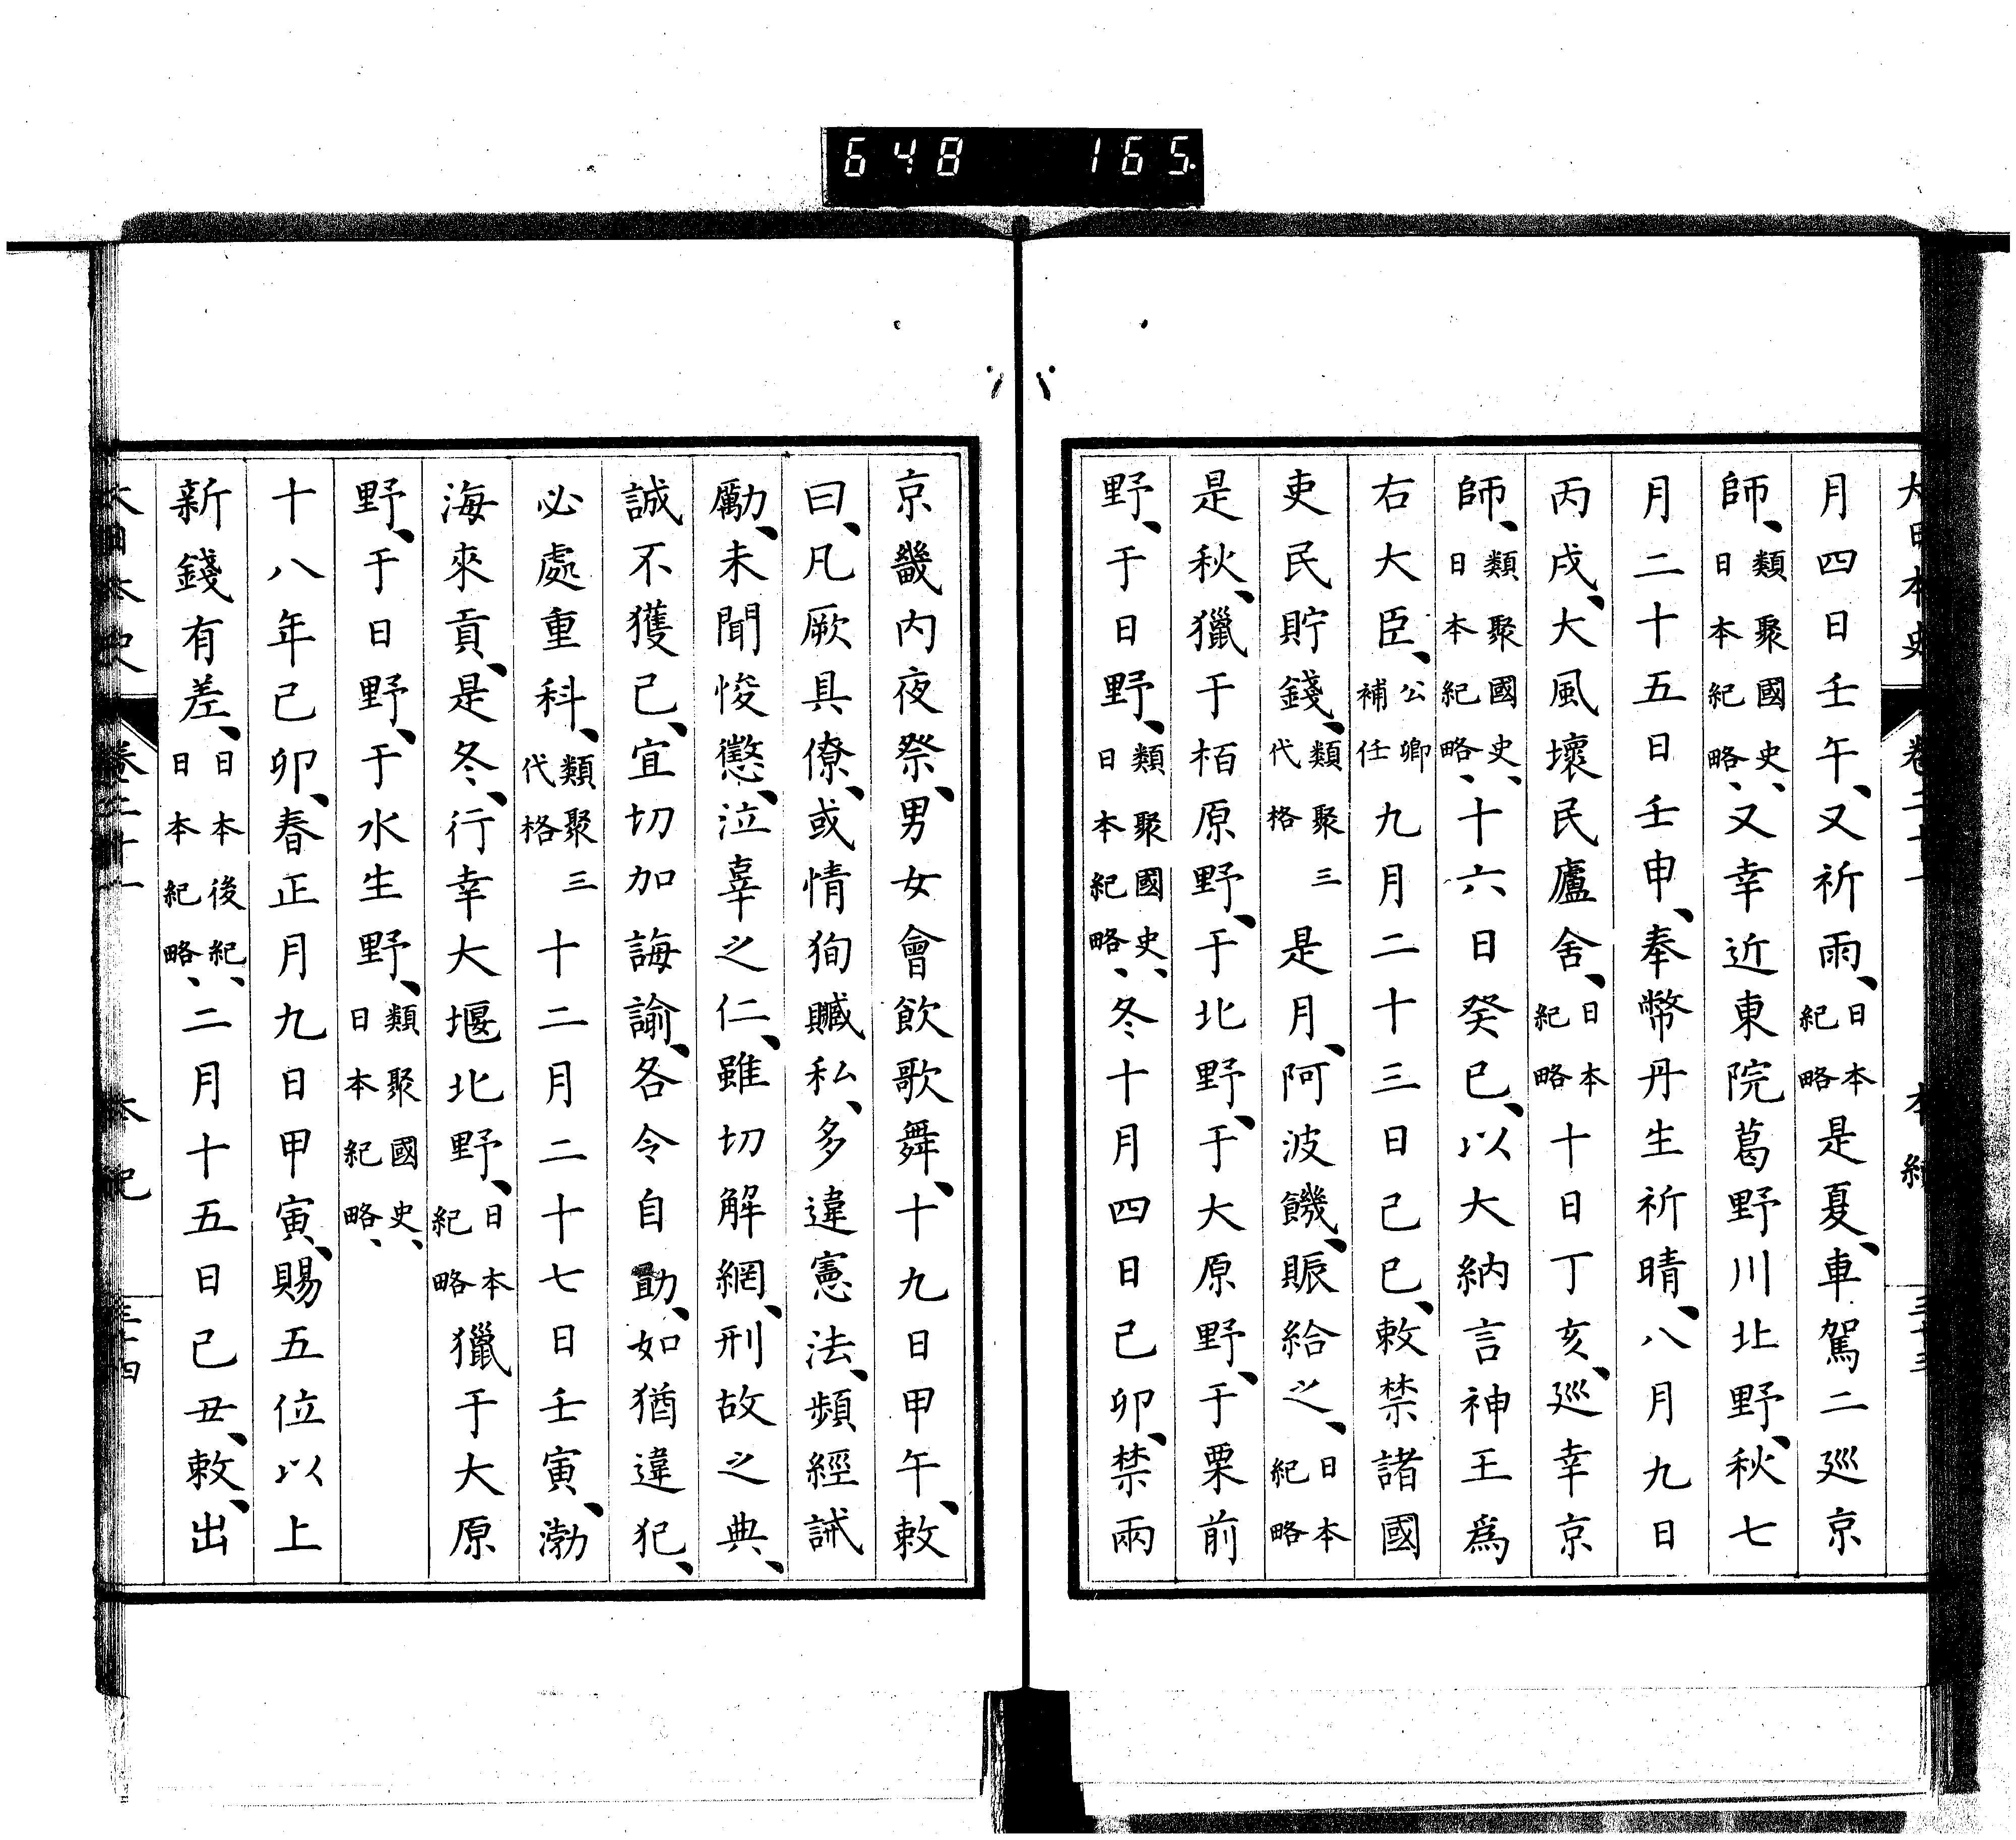 648 165
大日本史 卷二十一 本紀 三十三
月四日壬午、又祈雨、日本紀略是夏、車駕二巡京
師、類聚國史、日本紀略、又幸近東院葛野川北野、秋七
月二十五日壬申、奉幣丹生祈晴、八月九日
丙戌、大風壞民廬舍、日本紀略十日丁亥、巡幸京
師、類聚國史、日本紀略、十六日癸巳、以大納言神王爲
右大臣、公卿補任九月二十三日己巳、敕禁諸國
吏民貯錢、類聚三代格是月、阿波饑、賑給之、日本紀略
是秋、獵于栢原野、于北野、于大原野、于栗前
野、于日野、類聚國史、日本紀略、冬十月四日己卯、禁兩
京畿内夜祭、男女會飲歌舞、十九日甲午、敕
曰、凡厥具僚、或情狥贓私、多違憲法、頻經誡
勵、未聞悛懲、泣辜之仁、雖切解網、刑故之典、
誠不獲已、宜切加誨諭、各令自勖、如猶違犯、
必處重科、類聚三代格十二月二十七日壬寅、渤
海來貢、是冬、行幸大堰北野、日本紀略獵于大原
野、于日野、于水生野、類聚國史、日本紀略、
十八年己卯、春正月九日甲寅、賜五位以上
新錢有差、日本後紀、日本紀略、二月十五日己丑、敕、出
大日本史 卷二十一 本紀 三十四